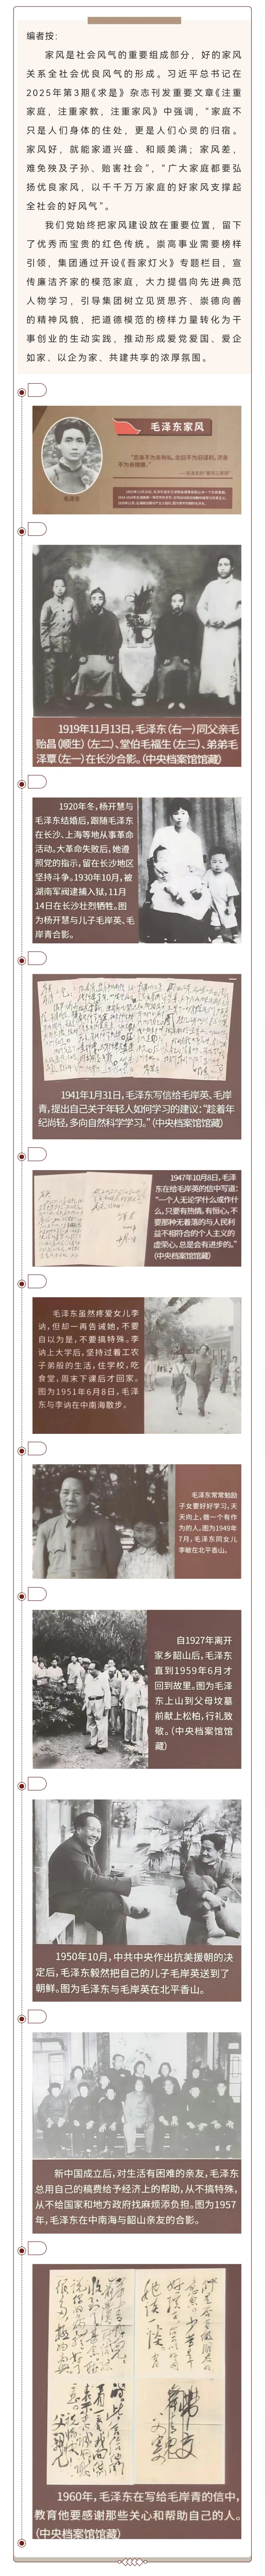 编者按：
家风是社会风气的重要组成部分，好的家风
关系全社会优良风气的形成。习近平总书记在
2025年第3期《求是》杂志刊发重要文章《注重
家庭，注重家教，注重家风》中强调，“家庭不
只是人们身体的住处，更是人们心灵的归宿。
家风好，就能家道兴盛、和顺美满；家风差，
难免殃及子孙、贻害社会”，“广大家庭都要弘
扬优良家风，以千千万万家庭的好家风支撑起
全社会的好风气”。
我们党始终把家风建设放在重要位置，留下
了优秀而宝贵的红色传统。崇高事业需要榜样
引领，集团通过开设《吾家灯火》专题栏目，宣
传廉洁齐家的模范家庭，大力提倡向先进典范
人物学习，引导集团树立见贤思齐、崇德向善
的精神风貌，把道德模范的榜样力量转化为干
事创业的生动实践，推动形成爱党爱国、爱企
如家、以企为家、共建共享的浓厚氛围。
毛泽东家风
“恋亲不为亲徇私，念旧不为旧谋利，济亲
不为亲撑腰。”
毛泽东
1919年11月13日，毛泽东（右一）同父亲毛
贻昌（顺生）（左二）、堂伯毛福生（左三）、弟弟毛
泽覃（左一）在长沙合影。（中央档案馆馆藏）
1920年冬，杨开慧与
毛泽东结婚后，跟随毛泽东
在长沙、上海等地从事革命
活动。大革命失败后，她遵
照党的指示，留在长沙地区
坚持斗争。1930年10月，被
湖南军阀逮捕入狱，11月
14日在长沙壮烈牺牲。图
为杨开慧与儿子毛岸英、毛
岸青合影。
1941年1月31日，毛泽东写信给毛岸英、毛岸
青，提出自己关于年轻人如何学习的建议：“趁着年
纪尚轻，多向自然科学学习。”（中央档案馆馆藏）
1947年10月8日，毛泽
东在给毛岸英的信中写道：
“一个人无论学什么或作什
么，只要有热情，有恒心，不
要那种无着落的与人民利
益不相符合的个人主义的
虚荣心，总是会有进步的。”
（中央档案馆馆藏）
毛泽东虽然疼爱女儿李
讷，但却一再告诫她，不要
自以为是，不要搞特殊。李
讷上大学后，坚持过着工农
子弟般的生活，住学校，吃
食堂，周末下课后才回家。
图为1951年6月8日，毛泽
东与李讷在中南海散步。
毛泽东常常勉励
子女要好好学习，天
天向上，做一个有作
为的人。图为1949年
7月，毛泽东同女儿
李敏在北平香山。
自1927年离开
家乡韶山后，毛泽东
直到1959年6月才
回到故里。图为毛泽
东上山到父母坟墓
前献上松柏，行礼致
敬。（中央档案馆馆
藏）
1950年10月，中共中央作出抗美援朝的决
定后，毛泽东毅然把自己的儿子毛岸英送到了
朝鲜。图为毛泽东与毛岸英在北平香山。
新中国成立后，对生活有困难的亲友，毛泽东
总用自己的稿费给予经济上的帮助，从不搞特殊，
从不给国家和地方政府找麻烦添负担。图为1957
年，毛泽东在中南海与韶山亲友的合影。
1960年，毛泽东在写给毛岸青的信中，
教育他要感谢那些关心和帮助自己的人。
（中央档案馆馆藏）